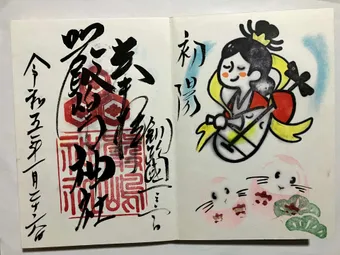 初陽
奉拝
創建一三
嚴島神社
令和五年一月二十